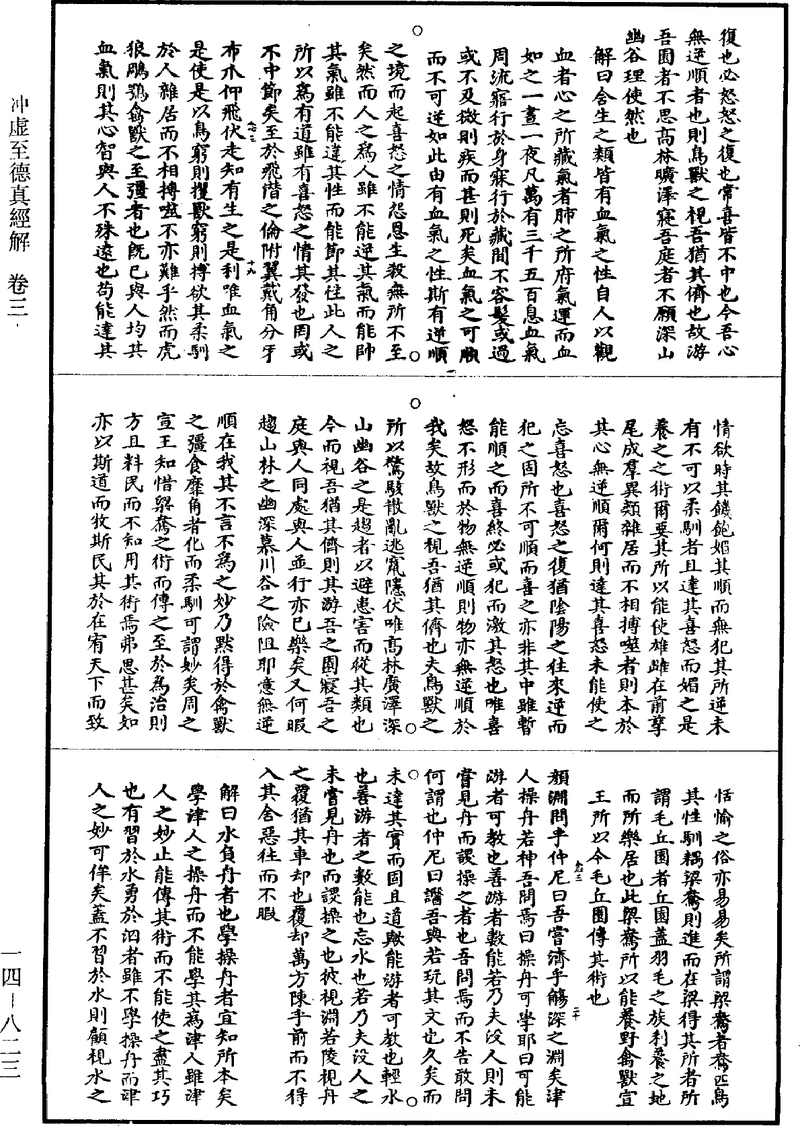 復也必怒怒之復也常喜皆不中也今吾心
無逆順者也則鳥獸之視吾猶其儕也故游
吾園者不思高林曠澤寢吾庭者不願深山
幽谷理使然也
解曰含生之類皆有血氣之性自人以觀
血者心之所藏氣者肺之所府氣運而血
如之一晝一夜凡萬有三千五百息血氣
周流寤行於身寐行於藏間不容髮或過
或不及微則疾而甚則死矣血氣之可順
而不可逆如此由有血氣之性斯有逆順
之境而起喜怒之情怨恩生殺無所不至
矣然而人之為人雖不能逆其氣而能帥
其氣雖不能違其性而能節其往此人之
所以為有道雖有喜怒之情其發也罔或
不中節矣至於飛階之倫附翼戴角分牙
布爪仰飛伏走知有生之是利唯血氣之
是使是以鳥窮則攫獸窮則搏欲其柔馴
於人雜居而不相搏噬不亦難乎然而虎
狼鵰鶚禽獸之至彊者也既已與人均其
血氣則其心智與人不殊遠也苟能達其
情欲時其饑飽媚其順而無犯其所逆未
有不可以柔馴者且達其喜怒而媚之是
養之之術爾要其所以能使雄雌在前孳
尾成羣異類雜居而不相搏噬者則本於
其心無逆順爾何則達其喜怒未能使之
忘喜怒也喜怒之復猶陰陽之往來逆而
犯之固所不可順而喜之亦非其中雖暫
能順之而喜終必或犯而激其怒也唯喜
怒不形而於物無逆順則物亦無逆順於
我矣故鳥獸之視吾猶其儕也夫鳥獸之
所以驚駭散亂逃竄隱伏唯高林廣澤深
山幽谷之是趨者以避患害而從其類也
今而視吾猶其儕則其游吾之園寢吾之
庭與人同處與人並行亦已樂矣又何暇
趨山林之幽深慕川谷之險阻耶意無逆
順在我其不言不為之妙乃默得於禽獸
之彊食靡角者化而柔馴可謂妙矣周之
宣王知惜梁鴦之術而傳之至於為治則
方且料民而不知用其術焉弗思甚矣如
亦以斯道而牧斯民其於在宥天下而致
恬愉之俗亦易易矣所謂梁鴦者鴦匹鳥
其性馴耦梁鴦則進而在梁得其所者所
謂毛丘園者丘園蓋羽毛之族利養之地
而所樂居也此梁鴦所以能養野禽獸宣
王所以令毛丘園傳其術也
顏淵問乎仲尼曰吾嘗濟乎觴深之淵矣津
人操舟若神吾問焉曰操舟可學耶曰可能
游者可教也善游者數能若乃夫沒人則未
嘗見舟而謖操之者也吾問焉而不告敢問
何謂也仲尼曰譆吾與若玩其文也久矣而
未達其實而固且道歟能游者可教也輕水
也善游者之數能也忘水也若乃夫沒人之
未嘗見舟也而謖操之也彼視淵若陵視舟
之覆猶其車却也覆却萬方陳乎前而不得
入其舍惡往而不暇
解曰水負舟者也學操舟者宜知所本矣
學津人之操舟而不能學其為津人雖津
人之妙止能傳其術而不能使之盡其巧
也有習於水勇於泅者雖不學操舟而津
人之妙可侔矣蓋不習於水則顧視水之
冲虛至德真經解 卷三
一四—八二三